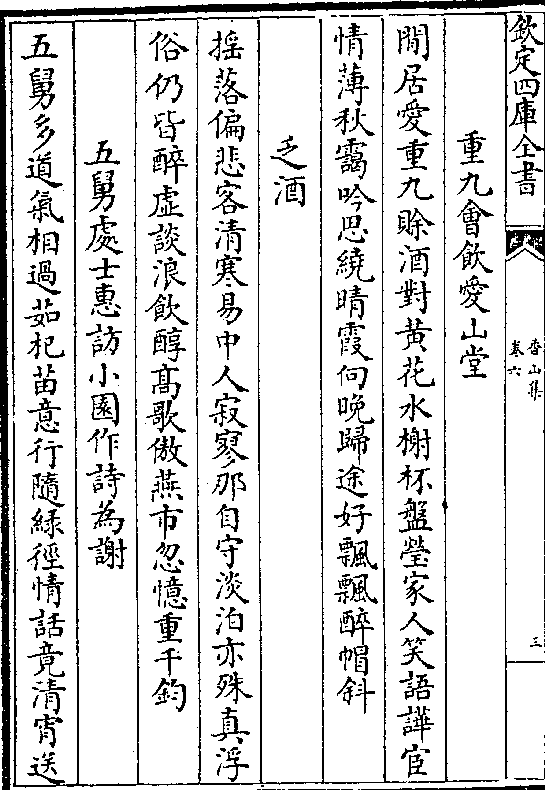 欽定四庫全書
香山集
卷六
三
重九會飲愛山堂
閒居愛重九賖酒對黄花水榭杯盤瑩家人笑語譁宦
情薄秋靄吟思繞晴霞向晚歸途好飄飄醉帽斜
乏酒
揺落偏悲客清寒易中人寂寥那自守淡泊亦殊真浮
俗仍皆醉虚談浪飲醇髙歌傲燕市忽憶重千鈞
五舅處士惠訪小園作詩為謝
五舅多道氣相過茹杞苗意行隨緑徑情話竟清宵送